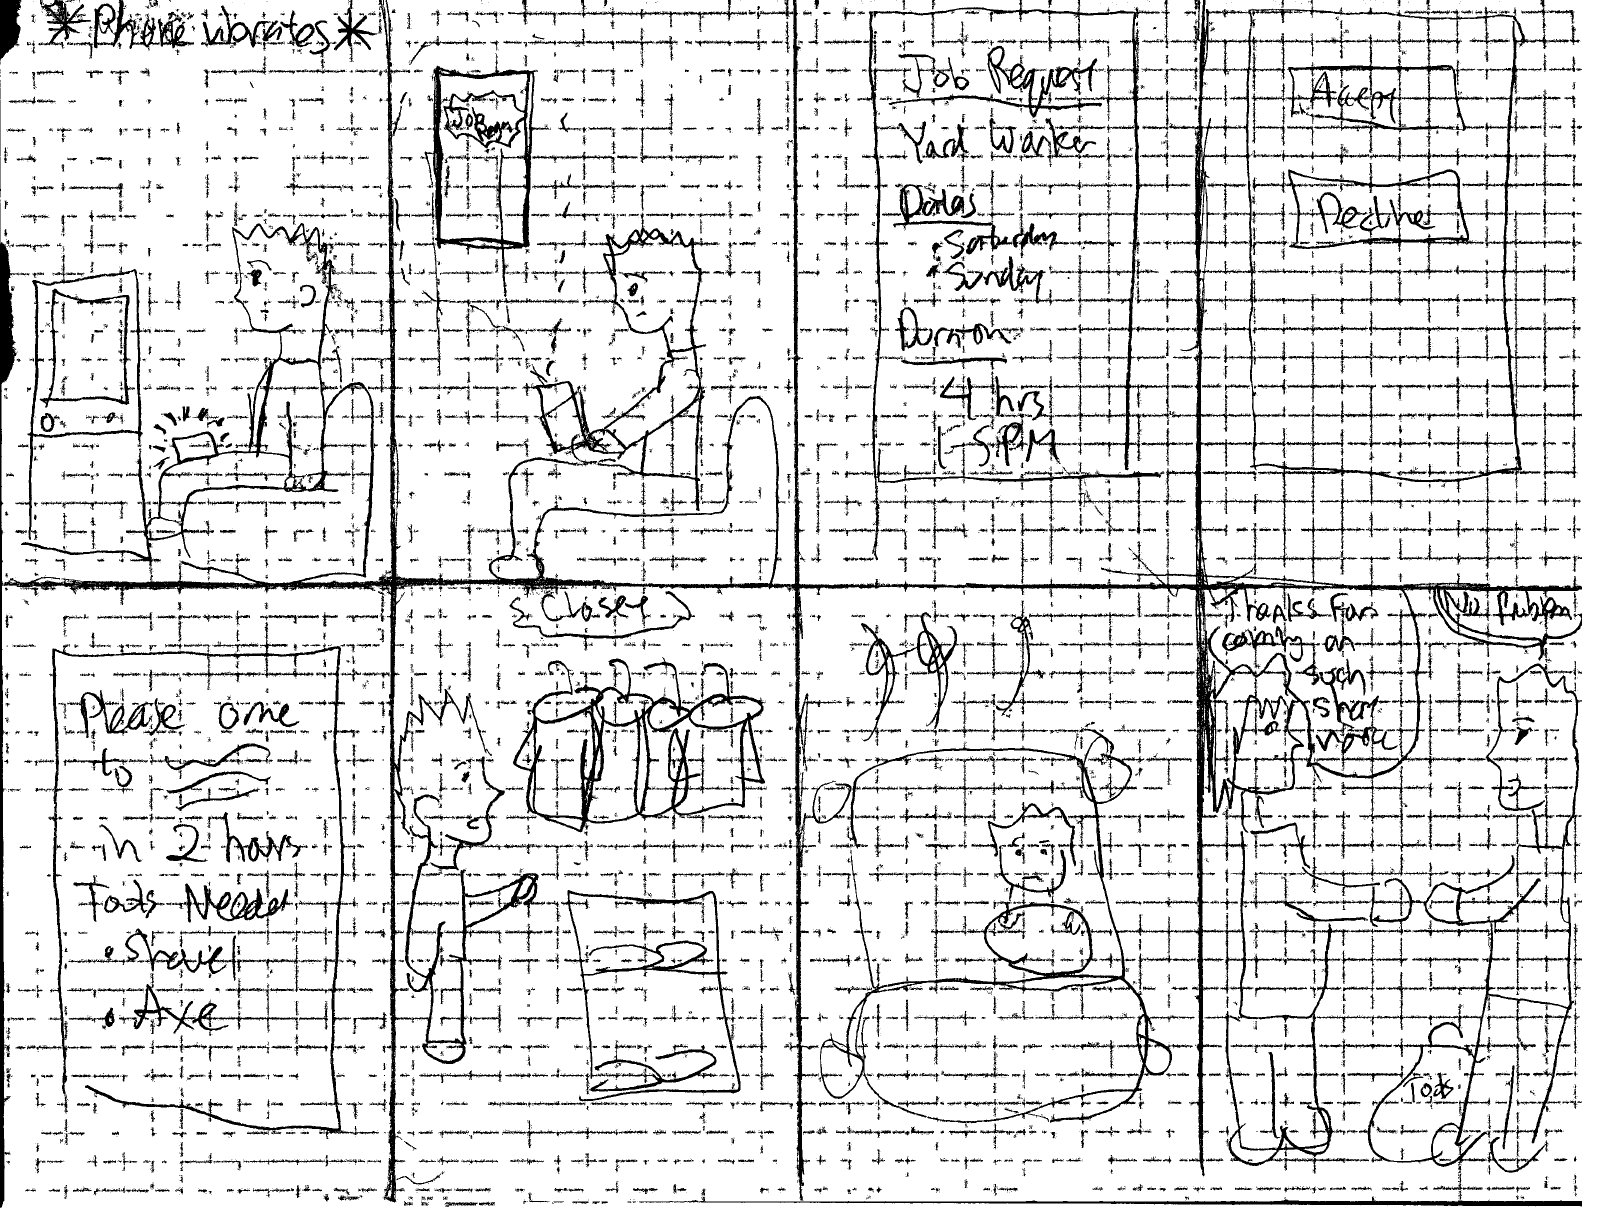 *Phone vibrates*
Job
Job Request
Yard Worker
Dates
• Saturday
• Sunday
Duration
4 hrs
1-5PM
Accept
Decline
Please come
to
in 2 hours
Tools Needed
• Shovel
• Axe
Closet
Thanks For
coming on
such
short
notice
No Problem
Tools